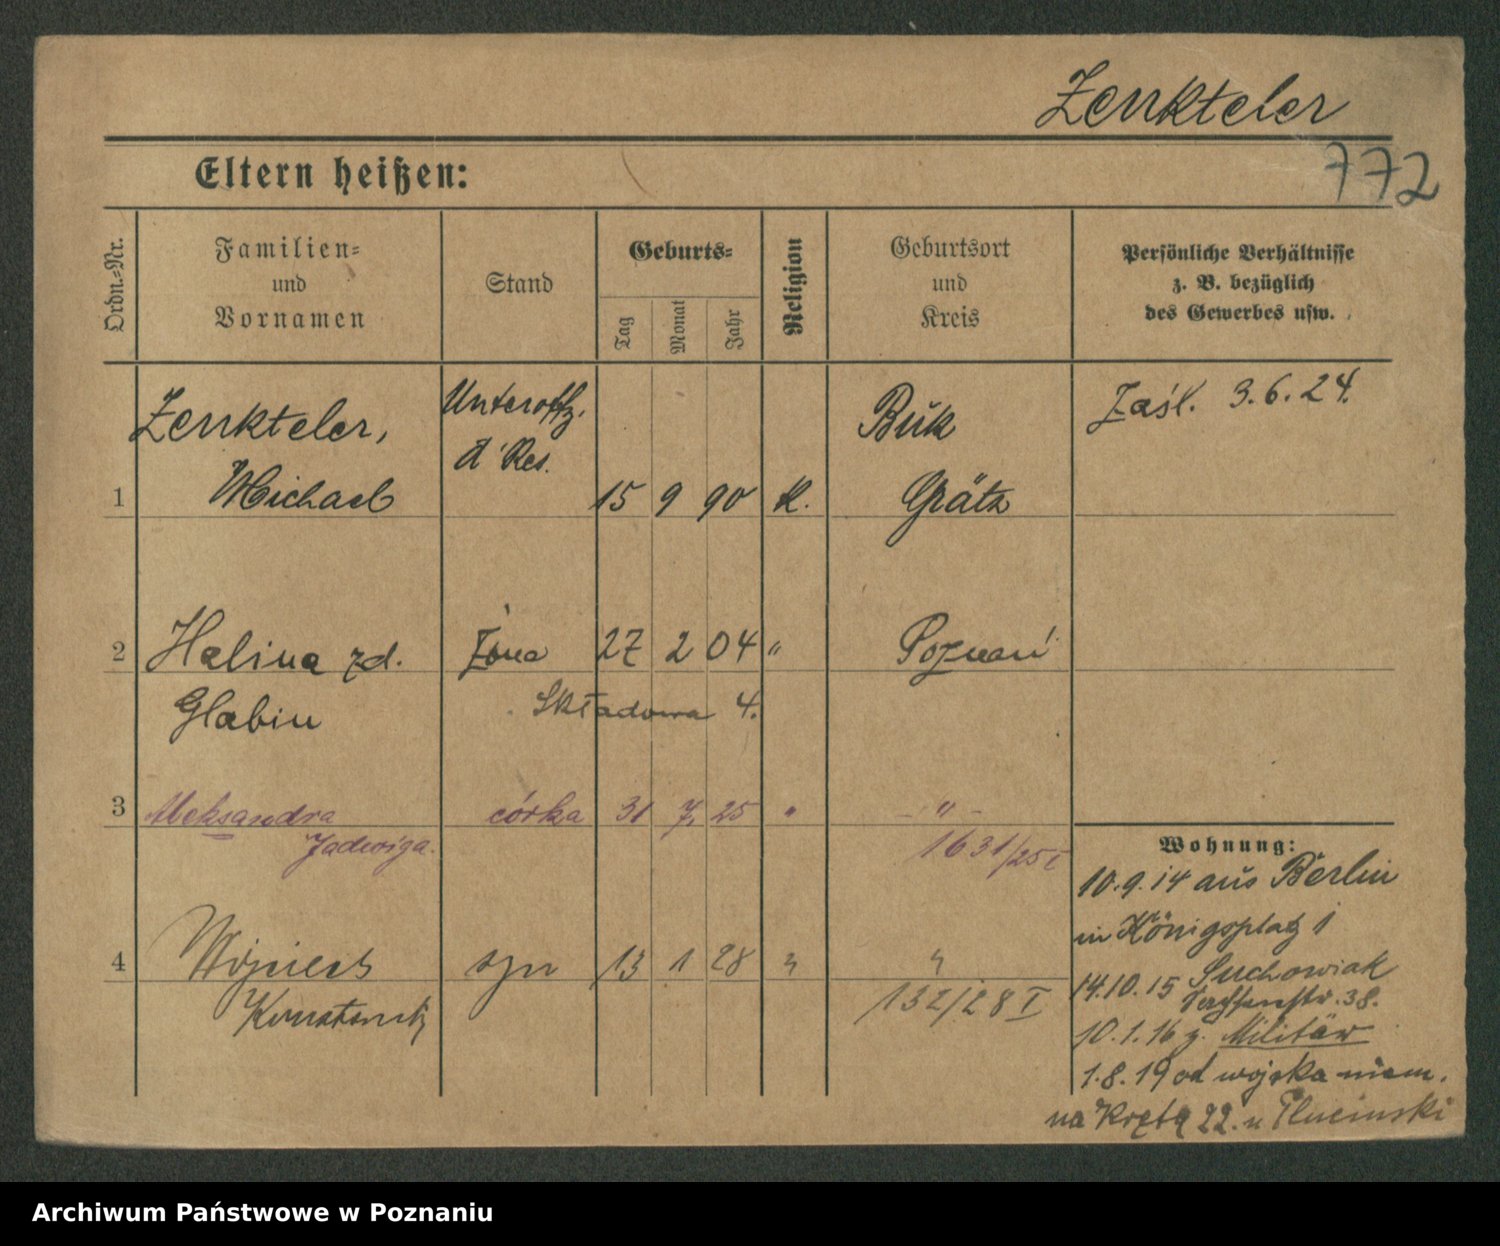 Zenkteler
Eltern heißen:
772
Ordn.-Nr.
Familien-
und
Vornamen
Stand
Geburts-
Tag
Monat
Jahr
Religion
Geburtsort
und
Kreis
Persönliche Verhältnisse
z. B. bezüglich
des Gewerbes usw.
Zenkteler,
Unteroffz.
d Res.
Buk
Zaśl. 3.6.24.
1 Michael 15 9 90 K. Grätz
2 Halina zd. żona 27 2 04 " Poznań
Glabin
Składowa 4.
3 Aleksandra córka 31 7. 25 " - " -
Jadwiga.
1631/25 I
4 Wojciech syn 13 1 28 " "
Konstanty
132/28 I
Wohnung:
10.9.14 aus Berlin
in Königsplatz 1
14.10.15 Suchowiak
38.
10.1.16 z. Militär
1.8.19 od wojska niem.
na Krętą 22. u Plucinski